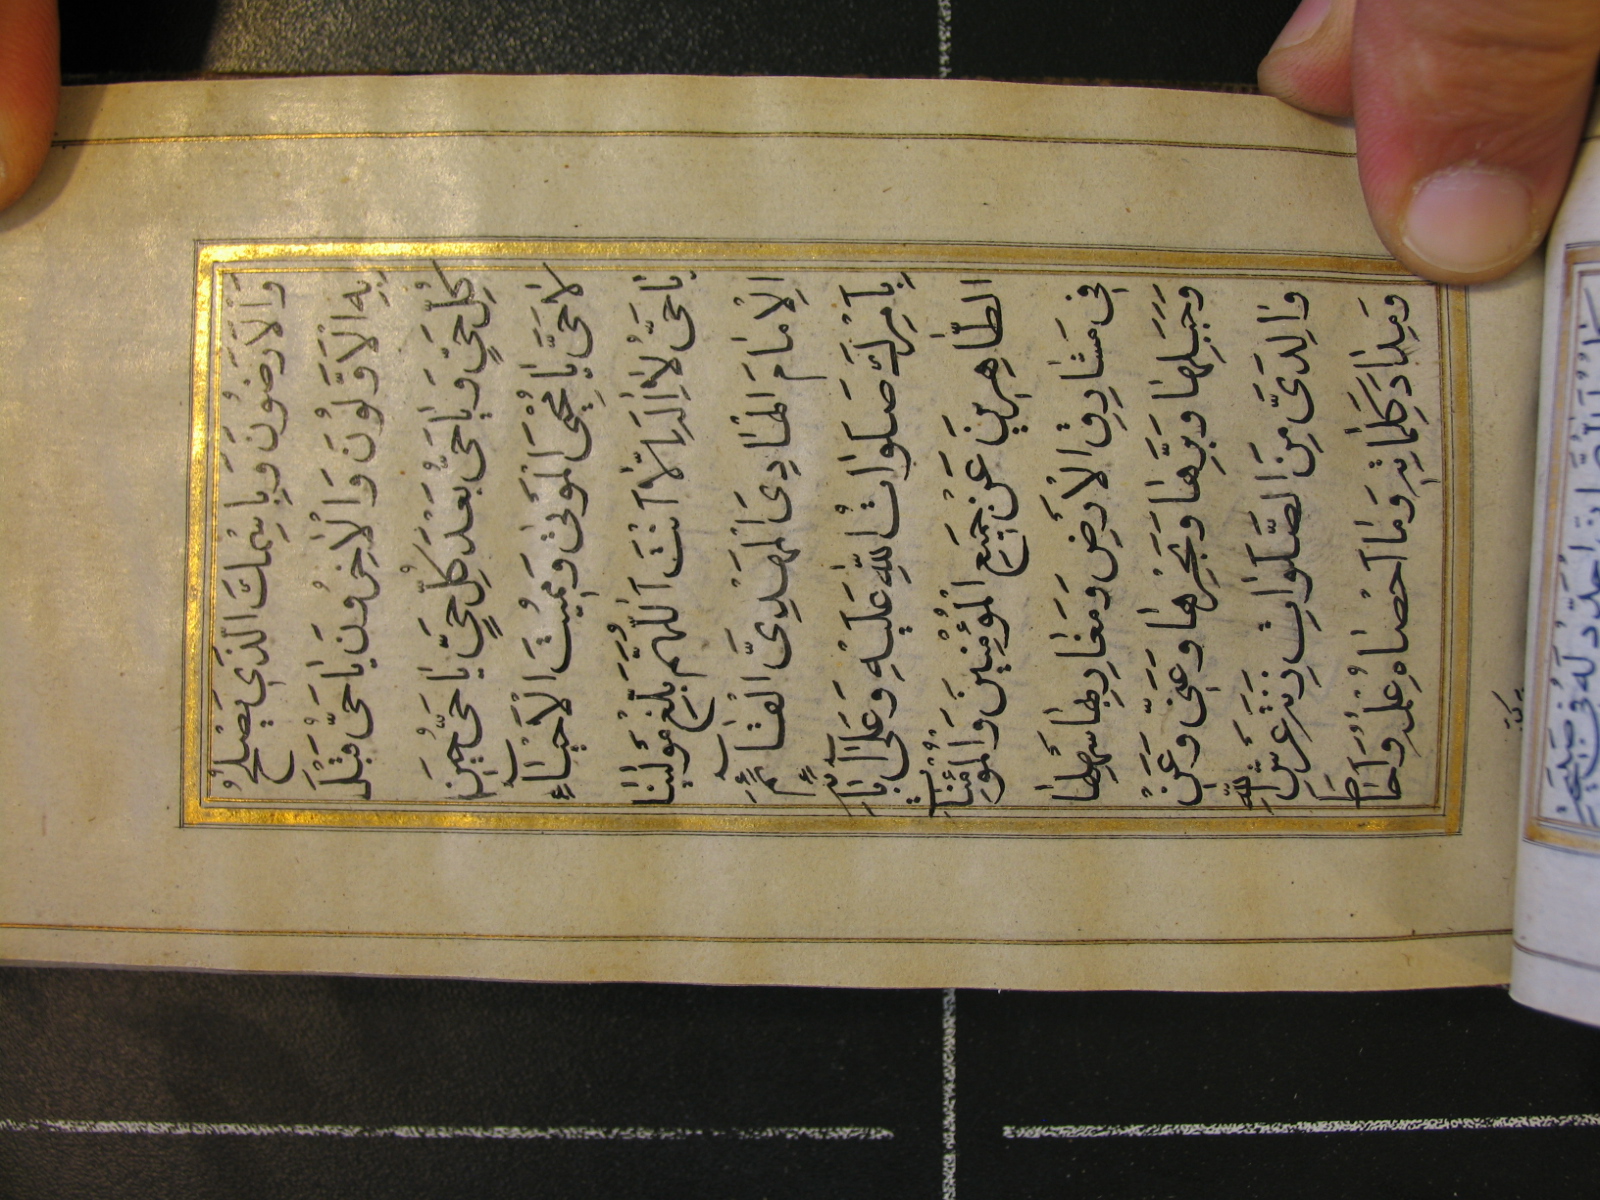 وَالْاَرَضُونَ وَبِاسْمِكَ الَّذِي يَصْلَحُ
بِهِ الْاَوَّلُونَ وَالْاٰخِرُونَ يٰا حَيُّ قَبْلَ
كُلِّ حَيٍّ وَيٰا حَيُّ بَعْدَ كُلِّ حَيٍّ يٰا حَيُّ حِينَ
لٰا حَيَّ يٰا مُحْيِيَ الْمَوْتىٰ وَمُمِيتَ الْاَحْيٰاءِ
يٰا حَيُّ لٰا اِلٰهَ اِلّٰا اَنْتَ اَللّٰهُمَّ بَلِّغْ مَوْلٰينَا
الْاِمٰامَ الْهٰادِيَ الْمَهْدِيَّ الْقٰائِمَ
بِاَمْرِكَ صَلَوٰاتُ اللّٰهِ عَلَيْهِ وَعَلىٰ اٰبٰائِهِ
الطّٰاهِرِينَ عَنْ جَمِيعِ الْمُؤْمِنِينَ وَالْمُؤْمِنٰاتِ
فِي مَشٰارِقِ الْاَرْضِ وَمَغٰارِبِهٰا سَهْلِهٰا
وَجَبَلِهٰا وَبَرِّهٰا وَبَحْرِهٰا وَعَنِّي وَعَنْ
وٰالِدَيَّ مِنَ الصَّلَوٰاتِ زِنَةَ عَرْشِ اللّٰهِ
وَمِدٰادَ كَلِمٰاتِهِ وَمٰا اَحْصٰاهُ عِلْمُهُ وَاَحٰاطَ